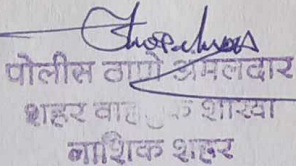 पोलीस ठाणे अंमलदार
शहर वाहतुक शाखा
नाशिक शहर